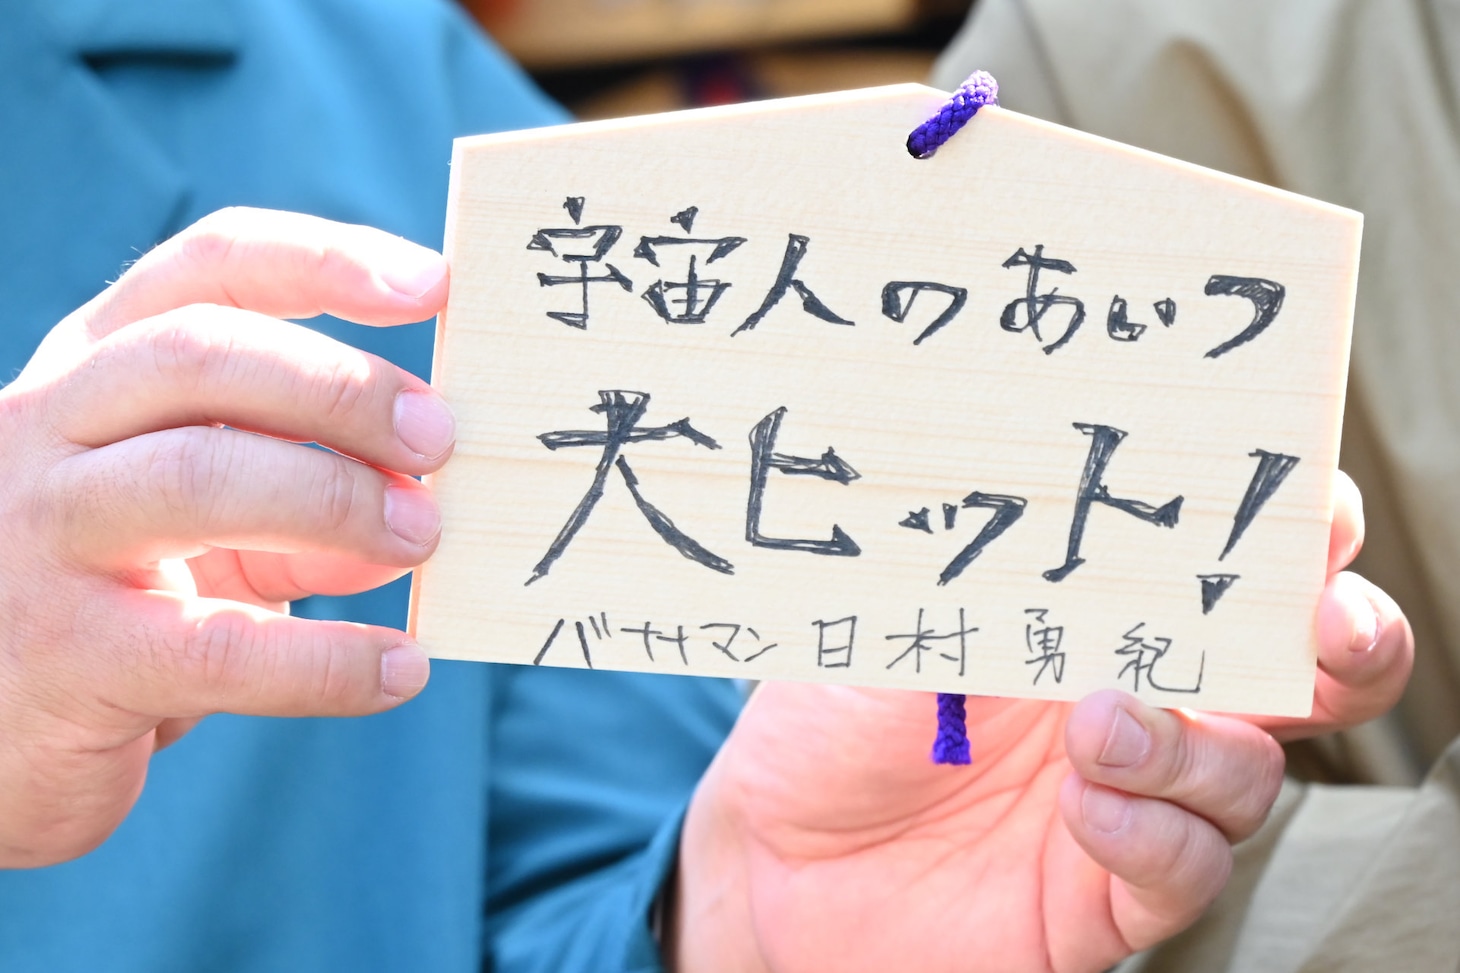 宇宙人のあいつ
大ヒット!
バナナマン 日村勇紀